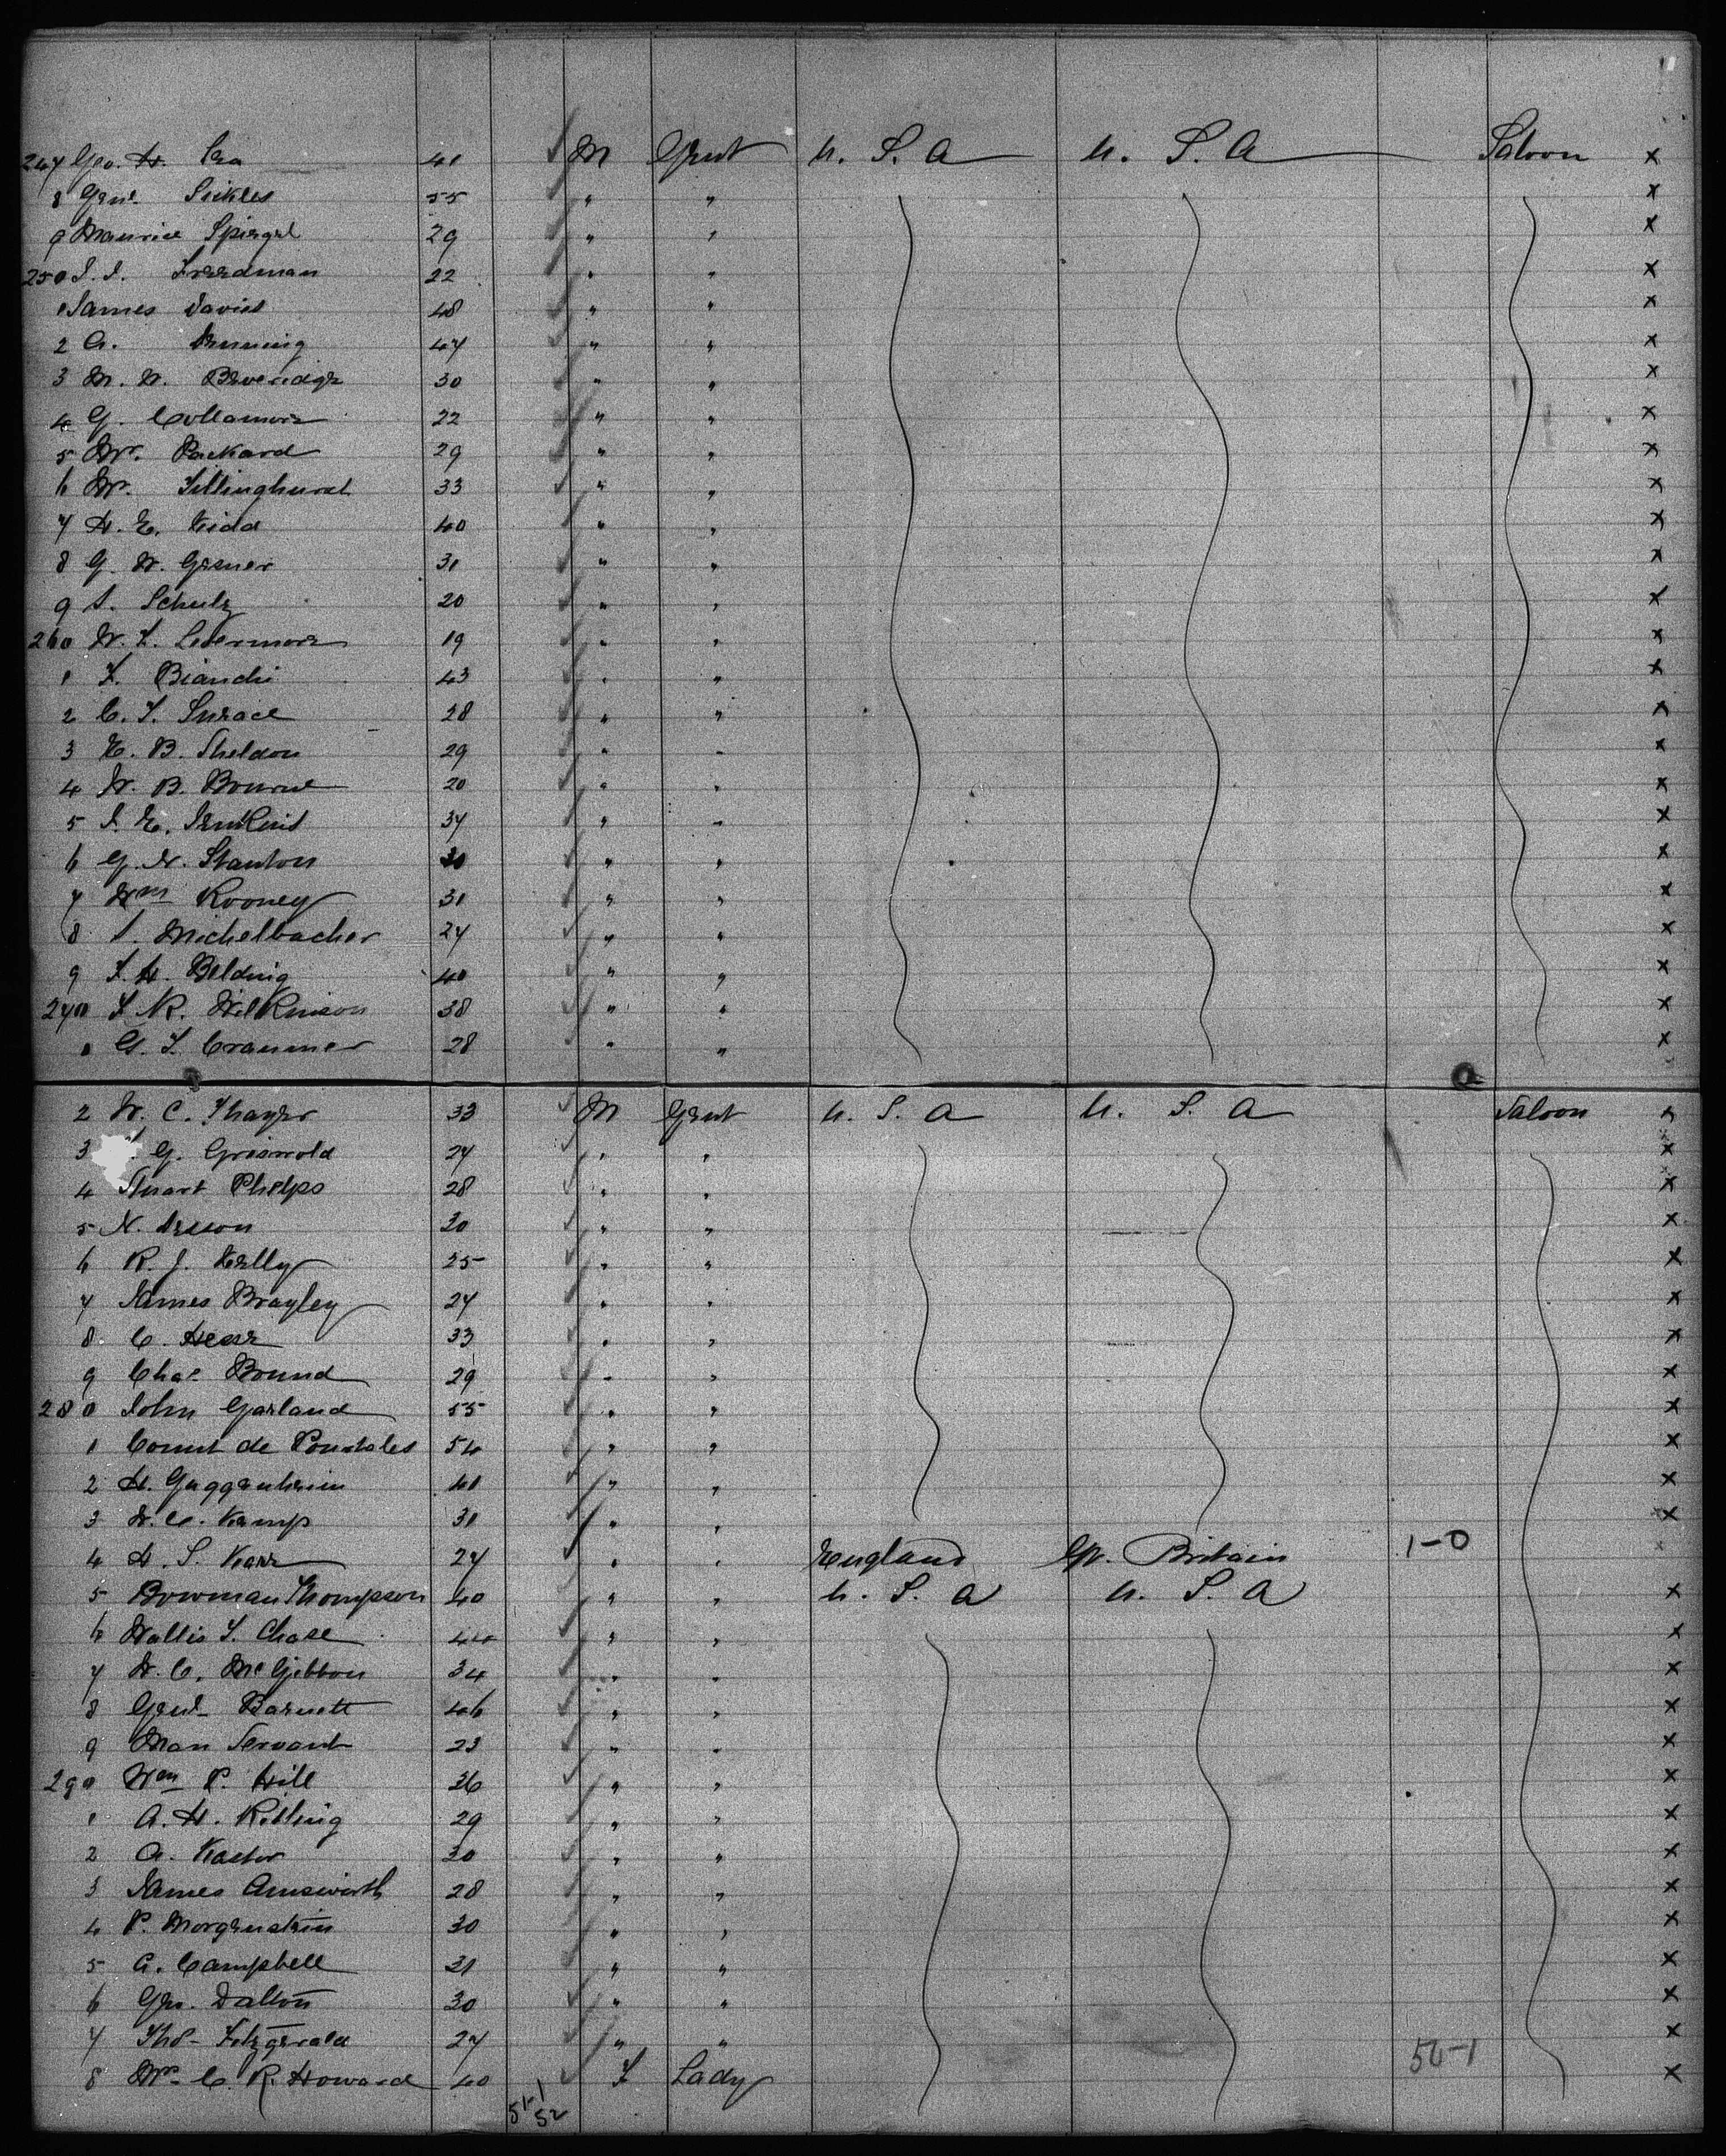 247 Geo. H. 41 M Gent U. S. A U. S. A Saloon x
8 Genl. Sickles 55 " " x
9 Maurice Spiegel 29 " " x
250 Freedman 22 " " x
1 James Davis 48 " " x
2 G. 47 " " x
3 M. W. Beveridge 30 " " x
4 G. Collamore 22 " " x
5 Mr. Packard 29 " " x
6 Mr. Tillinghurst 33 " " x
7 H. E. Kidd 40 " " x
8 G. W. Gesner 31 " " x
9 S. Schulz 20 " " x
260 W. F. Livermore 19 " " x
1 F. Bianchi 43 " " x
2 C. T. 28 " " x
3 E. B. Sheldon 29 " " x
4 W. B. Bourne 20 " " x
5 J. E. Jenkins 37 " " x
6 G. W. Stanton 30 " " x
7 Wm Rooney 31 " " x
8 S. Michelbacher 27 " " x
9 F. H. Belding 40 " " x
270 F. R. Wilkinson 38 " " x
1 G. T. Cranmer 28 " " x
2 W. C. Thayer 33 M Gent U. S. A U. S. A Saloon x
3 G. Griswold 27 " " x
4 Stuart Phelps 28 " " x
5 N. 30 " " x
6 R. J. Kelly 25 " " x
7 James Brayley 27 " " x
8 C. 33 " " x
9 Chas. Bound 29 " " x
280 John Garland 55 " " x
1 Count de Pourtales 54 " " x
2 H. Guggenheim 40 " " x
3 W. C. Kemp 31 " " x
4 H. S. Karr 27 " " England Gr. Britain 1-0 x
5 Bowman Thompson 40 " " U. S. A U. S. A x
6 Wallis T. Chase 44 " " x
7 W. C. McGibbon 34 " " x
8 Genl. Barnett 46 " " x
9 Man Servant 23 " " x
290 Wm P. Hill 36 " " x
1 A. H. Kibling 29 " " x
2 A. Kastor 30 " " x
3 James Ainsworth 28 " " x
4 P. Morgenstein 30 " " x
5 G. Campbell 31 " " x
6 Geo. Dalton 30 " " x
7 Thos. Fitzgerald 27 " " x
8 Mrs. C. R. Howard 40 F Lady 50-1 x
51-1
52